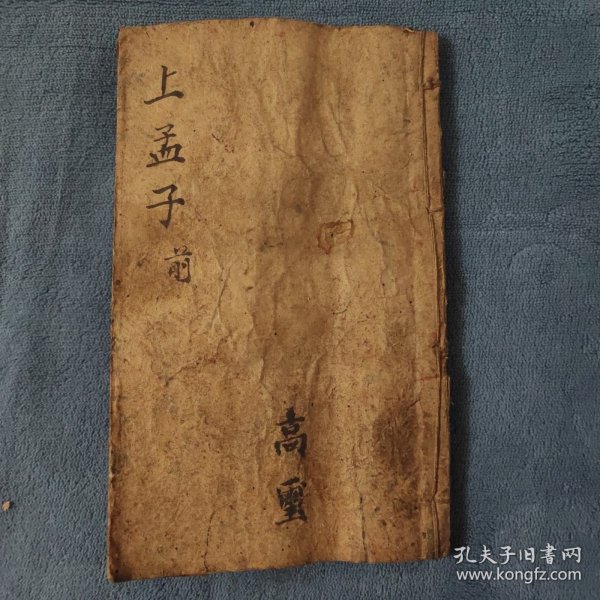 上孟子
前
高璽
孔夫子旧書网
www.kongfz.com